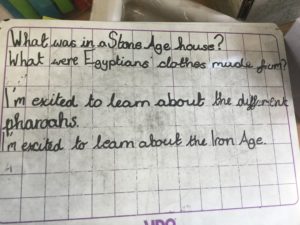 What was in a Stone Age house?
What were Egyptians clothes made from?
I'm exited to learn about the different
pharoahs.
I'm excited to learn about the Iron Age.